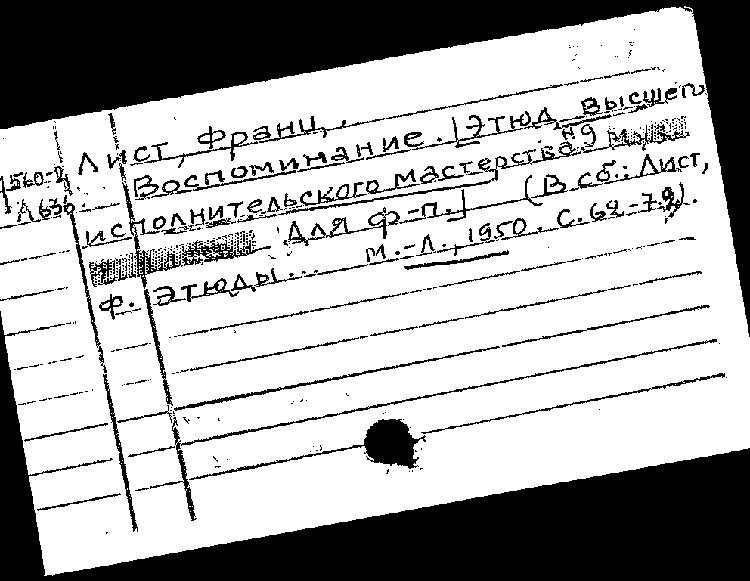 Лист, Франц,.
Воспоминание. [Этюд высшего
исполнительского мастерства №9
Для ф-п.] (В сб.: Лист,
Ф. Этюды... М.-Л., 1950. С. 62-79).